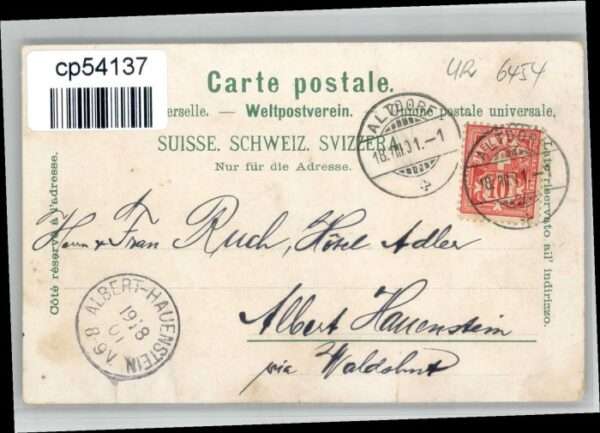 cp54137
Ur 6454
Carte postale.
erselle. — Weltpostverein. — Unione postale universale.
SUISSE. SCHWEIZ. SVIZZERA.
Nur für die Adresse.
ALTDORF
18.VIII.01.-1
ALTDORF
10
Côté réservé à l'adresse.
Lato riservato all' indirizzo.
Herrn & Frau Ruch, Hôtel Adler
ALBERT-HAUENSTEIN
19 8
01
V.
Albert Hauenstein
via Waldshut